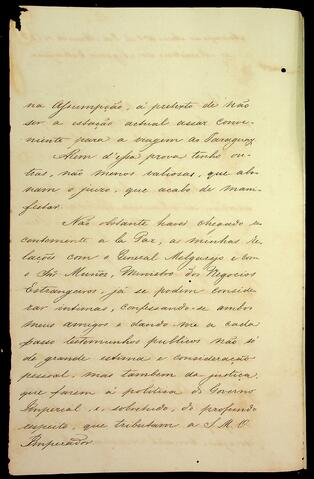 na Assumpção, á pretexto de não
ser a estação actual assas conve-
niente para a viagem ao Paraguay.
Alem d'essa prova tenho ou-
tras, não menos valiosas, que abo-
nam o juizo, que acabo de mani-
festar.
Não obstante haver chegado re-
centemente a la Paz, as minhas re-
lações com o General Melgarejo e com
o Snr. Muñoz, Ministro dos Negocios
Estrangeiros, já se podem conside-
rar intimas, confessando-se ambos
meus amigos e dando-me a cada
passo testimunhos publicos não só
de grande estima e consideração
pessoal, mas tambem da justiça,
que fazem á politica do Governo
Imperial e, sobretudo, do profundo
respeito, que tributam a S. M. O
Imperador.